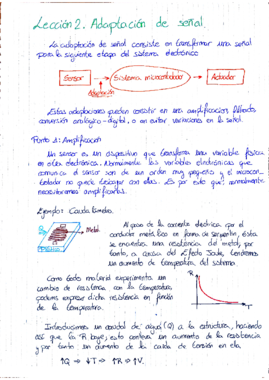 Lección 2. Adaptación de señal.
La adaptación de señal consiste en transformar una señal
para la siguiente etapa del sistema electrónico
Sensor
Sistema microcontrolador
Actuador
Adaptación
Estas adaptaciones pueden consistir en una amplificación, filtrado,
conversión analógico - digital, o en evitar variaciones en la señal.
Punto 1: Amplificación
Un sensor es un dispositivo que transforma una variable física
en otra eléctrica. Normalmente las variables electrónicas que
comunica el sensor son de un orden muy pequeño y el microcon-
trolador no puede trabajar con ellas. Es por esto que normalmente
necesitaremos amplificarlas.
Ejemplo: Caudalímetro.
Metal
Al pasar de la corriente eléctrica por el
conductor metálico en forma de serpentín, ésta
se encuentra una resistencia del metal, por
tanto, a causa del Efecto Joule, tendremos
un aumento de temperatura del sistema.
Como todo material experimenta un
cambio de resistencia con la temperatura,
podemos expresar dicha resistencia en función
de la temperatura.
R
T
Introducimos un caudal de agua (Q) a la estructura, haciendo
así que la T baje; esto conlleva un aumento de la resistencia
y por tanto un aumento de la caída de tensión en ella.
↑Q → ↓T → ↑R → ↑V.